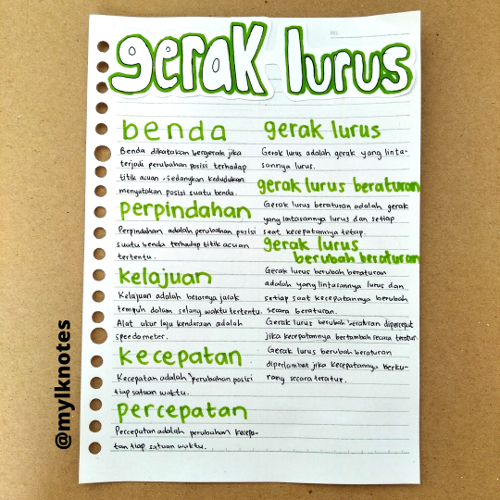 gerak lurus
benda
Benda dikatakan bergerak jika
terjadi perubahan posisi terhadap
titik acuan. Sedangkan kedudukan
menyatakan posisi suatu benda.
perpindahan
Perpindahan adalah perubahan posisi
suatu benda terhadap titik acuan
tertentu.
kelajuan
Kelajuan adalah besarnya jarak
tempuh dalam selang waktu tertentu.
Alat ukur laju kendaraan adalah
speedometer.
kecepatan
Kecepatan adalah perubahan posisi
tiap satuan waktu.
percepatan
Percepatan adalah perubahan kecepa-
tan tiap satuan waktu.
gerak lurus
Gerak lurus adalah gerak yang linta-
sannya lurus.
gerak lurus beraturan
Gerak lurus beraturan adalah gerak
yang lintasannya lurus dan setiap
saat kecepatannya tetap.
gerak lurus
berubah beraturan
Gerak lurus berubah beraturan
adalah yang lintasannya lurus dan
setiap saat kecepatannya berubah
secara beraturan.
Gerak lurus berubah beraturan dipercepat
jika kecepatannya bertambah secara teratur.
Gerak lurus berubah beraturan
diperlambat jika kecepatannya berku-
rang secara teratur.
@mylknotes